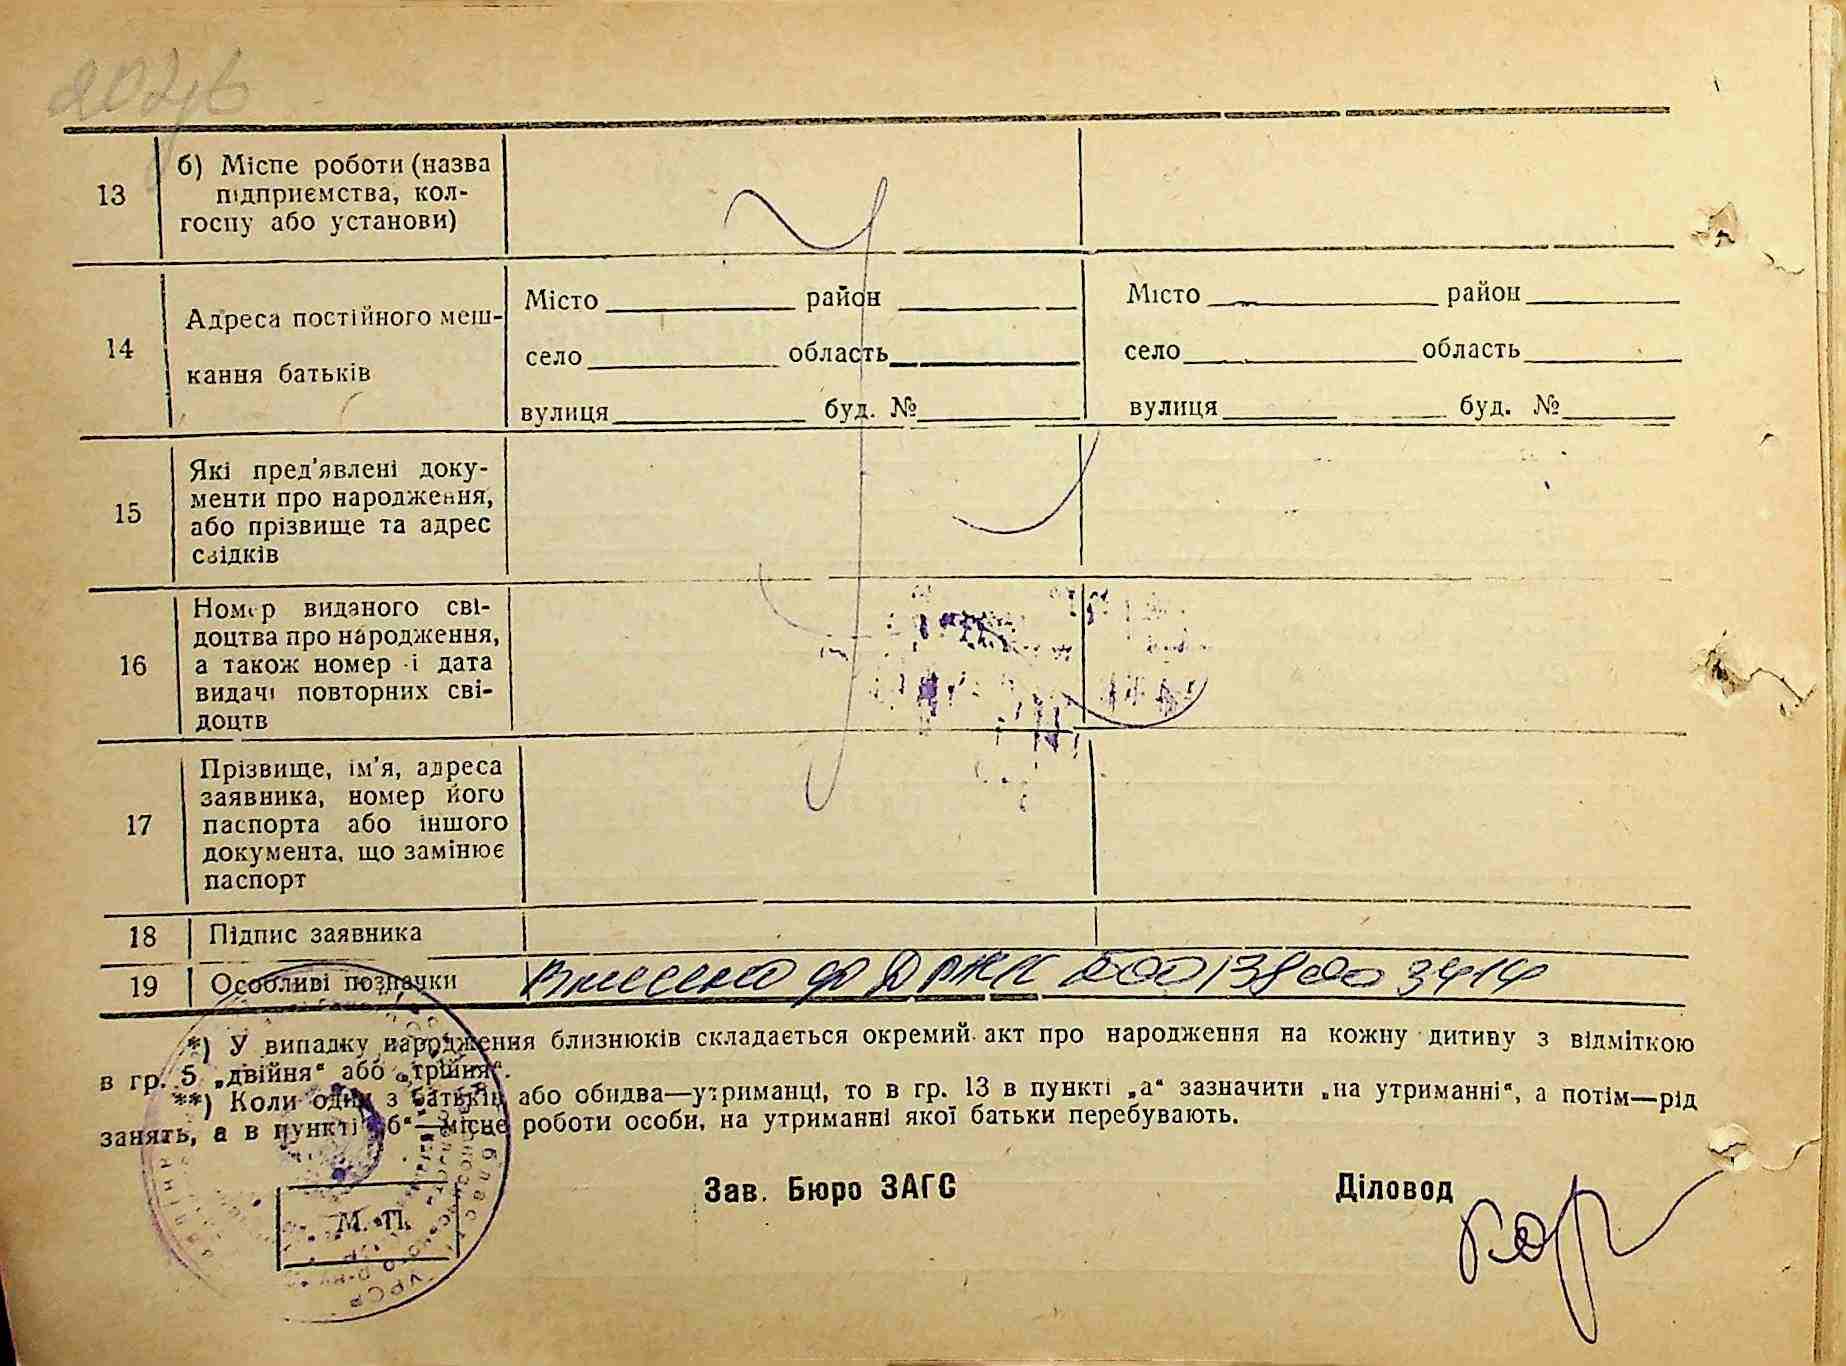 13
б) Місце роботи (назва
підприємства, кол-
госпу або установи)
14
Адреса постійного меш-
кання батьків
Місто район
село область
вулиця буд. №
Місто район
село область
вулиця буд. №
15
Які пред'явлені доку-
менти про народження,
або прізвище та адрес
свідків
16
Номер виданого сві-
доцтва про народження,
а також номер і дата
видачі повторних сві-
доцтв
17
Прізвище, ім'я, адреса
заявника, номер його
паспорта або іншого
документа, що замінює
паспорт
18 Підпис заявника
19 Особливі позначки Внесено до
*) У випадку народження близнюків складається окремий акт про народження на кожну дитину з відміткою
в гр. 5 „двійня“ або „трійня“.
**) Коли один з батьків або обидва—утриманці, то в гр. 13 в пункті „а“ зазначити „на утриманні“, а потім—рід
занять, а в пункті „б“—місце роботи особи, на утриманні якої батьки перебувають.
Зав. Бюро ЗАГС Діловод
М. П.